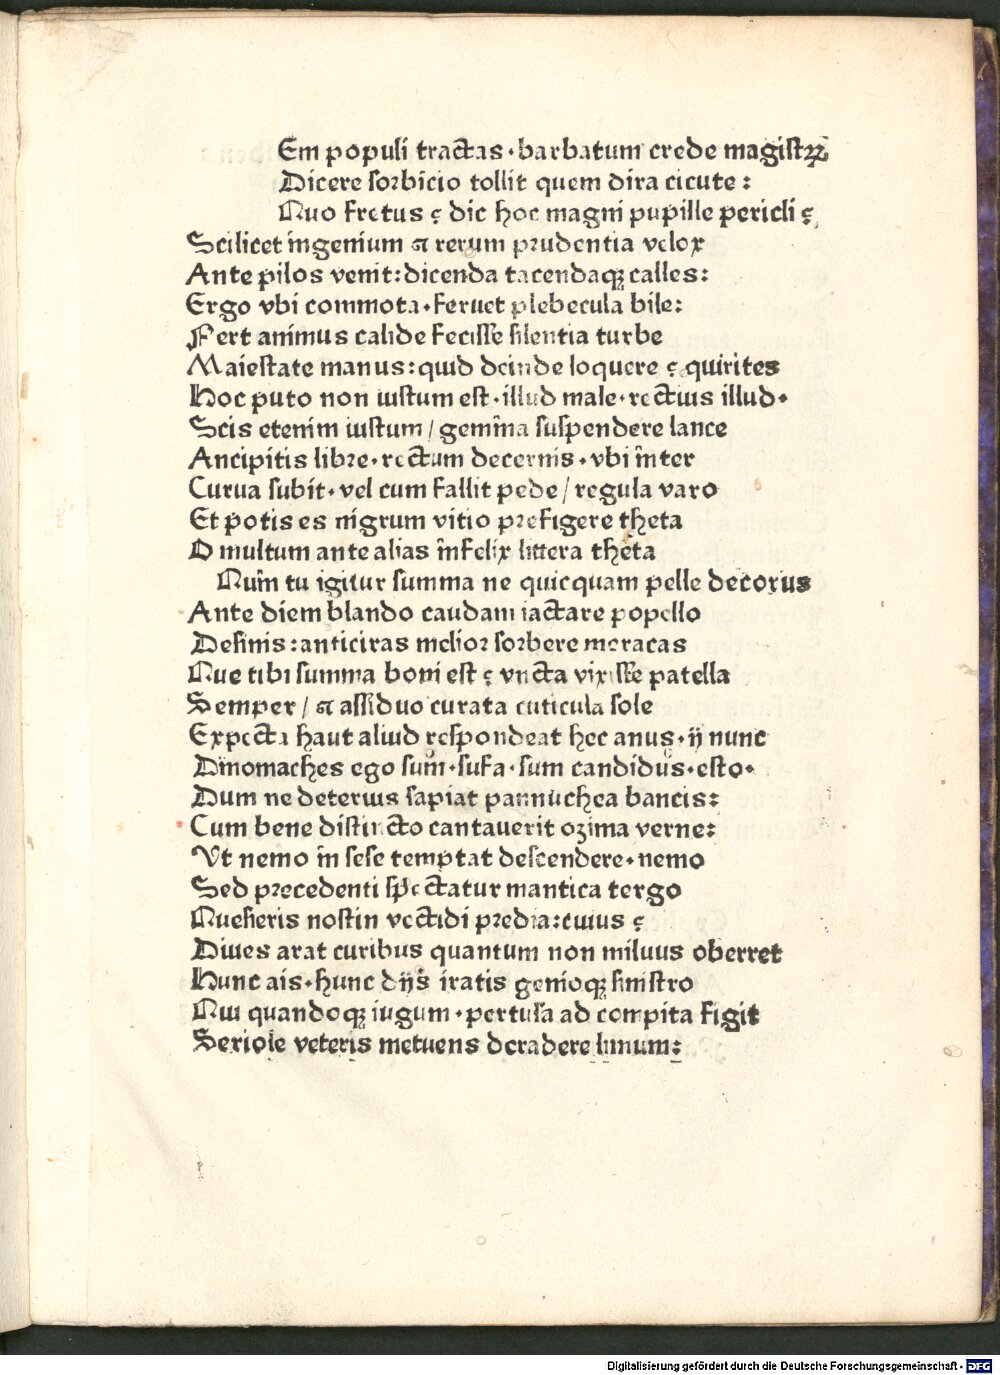 Em populi tractas · barbatum crede magistrꝝ
Dicere sorbicio tollit quem dira cicute :
Quo fretus ꝛ dic hoc magni pupille pericli ꝛ
Scilicet ingenium ⁊ rerum prudentia velox
Ante pilos venit : dicenda tacendaqꝫ calles :
Ergo vbi commota · feruet plebecula bile :
Fert animus calide fecisse silentia turbe
Maiestate manus : quid deinde loquere ꝛ quirites
Hoc puto non iustum est · illud male · rectius illud ·
Scis etenim iustum / gemina suspendere lance
Ancipitis libre · rectum decernis · vbi inter
Curua subit · vel cum fallit pede / regula varo
Et potis es nigrum vitio prefigere theta
O multum ante alias infelix littera theta
Quin tu igitur summa ne quicquam pelle decorus
Ante diem blando caudam iactare popello
Desinis : anticiras melior sorbere meracas
Que tibi summa boni est ꝛ vncta vixisse patella
Semper / ⁊ assiduo curata cuticula sole
Expecta haut aliud respondeat hec anus · ij nunc
Dinomaches ego sum · sufa · sum candidus · esto ·
Dum ne deterius sapiat pannuchea bancis :
Cum bene distincto cantauerit ozima verne :
Vt nemo in sese temptat descendere · nemo
Sed precedenti spectatur mantica tergo
Quesieris nostin vectidi predia : cuius ꝛ
Diues arat curibus quantum non miluus oberret
Hunc ais · hunc dijs iratis genioqꝫ sinistro
Qui quandoqꝫ iugum · pertusa ad compita figit
Seriole veteris metuens deradere limum :
Digitalisierung gefördert durch die Deutsche Forschungsgemeinschaft - DFG